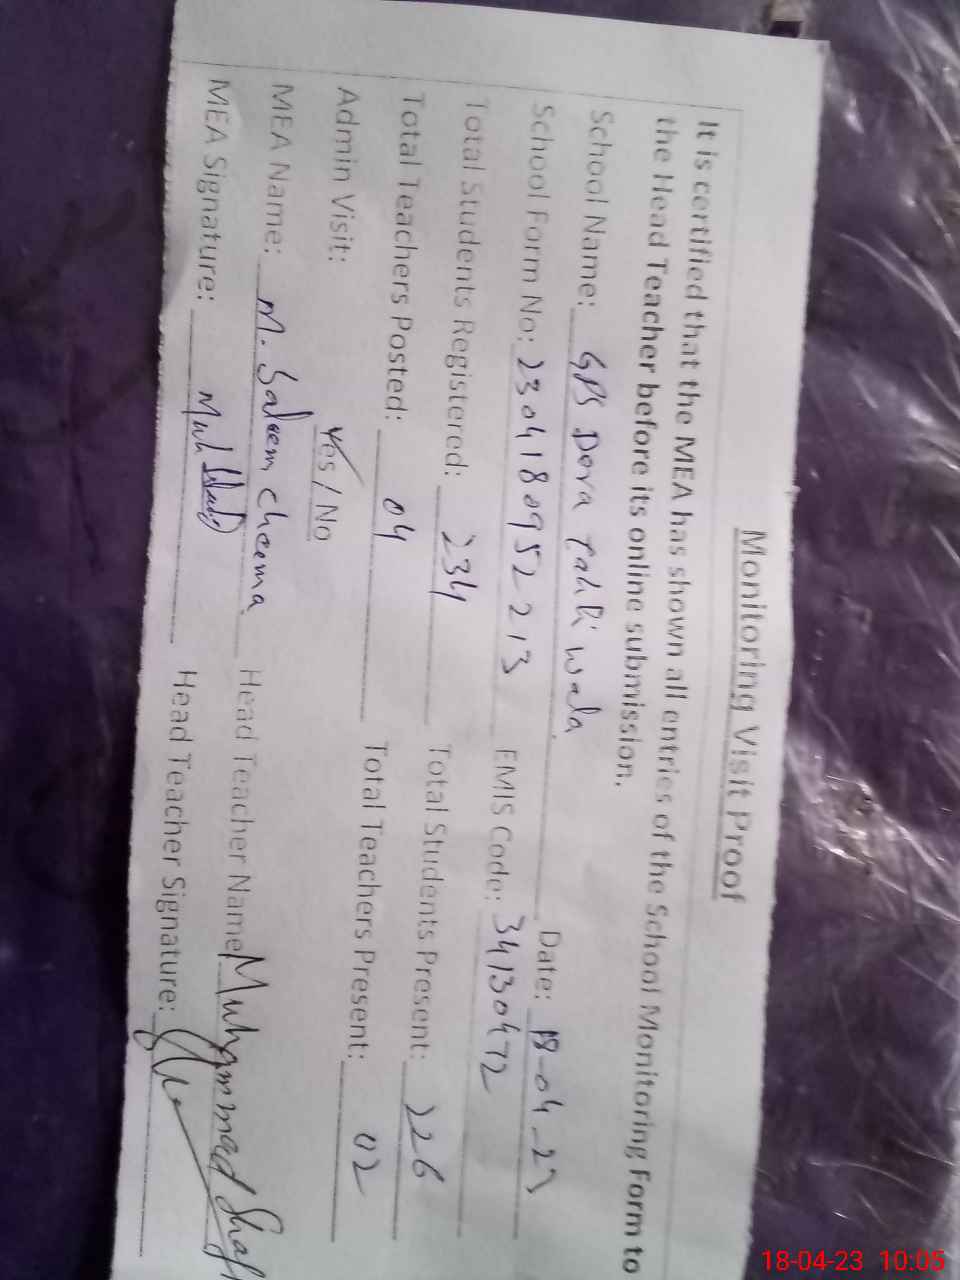 Monitoring Visit Proof
It is certified that the MEA has shown all entries of the School Monitoring Form to
the Head Teacher before its online submission.
School Name: GPS Dera Tahli wala Date: 18-04-23
School Form No: 23041809522213 EMIS Code: 34130472
Total Students Registered: 234 Total Students Present: 226
Total Teachers Posted: 04 Total Teachers Present: 02
Admin Visit: Yes / No
MEA Name: M. Saleem Cheema Head Teacher Name: Muhammad
MEA Signature: Head Teacher Signature:
18-04-23 10:05